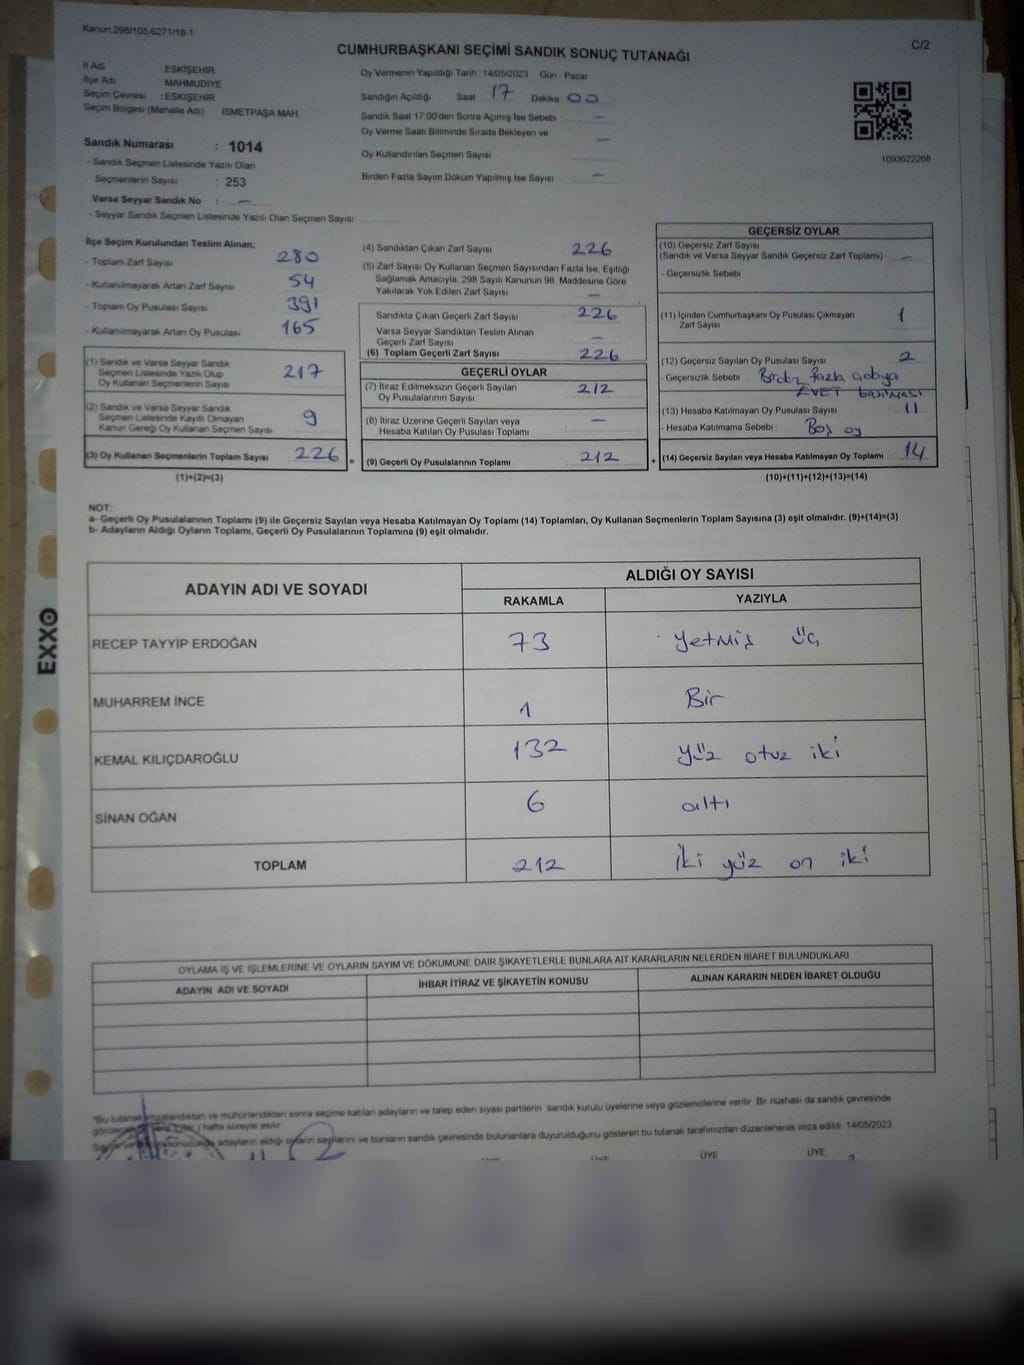 Kanun:298/105,6271/18-1
C/2
CUMHURBAŞKANI SEÇİMİ SANDIK SONUÇ TUTANAĞI
İl Adı : ESKİŞEHİR
İlçe Adı MAHMUDİYE
Seçim Çevresi : ESKİŞEHİR
Seçim Bölgesi (Mahalle Adı) : İSMETPAŞA MAH.
Sandık Numarası : 1014
- Sandık Seçmen Listesinde Yazılı Olan
Seçmenlerin Sayısı : 253
Varsa Seyyar Sandık No : —
- Seyyar Sandık Seçmen Listesinde Yazılı Olan Seçmen Sayısı
Oy Vermenin Yapıldığı Tarih 14/05/2023 Gün : Pazar
Sandığın Açıldığı Saat 17 Dakika 00
Sandık Saat 17:00'den Sonra Açımış İse Sebebi —
Oy Verme Saati Bitiminde Sırada Bekleyen ve
Oy Kullandırılan Seçmen Sayısı —
Birden Fazla Sayım Döküm Yapılmış İse Sayısı —
1093622268
İlçe Seçim Kurulundan Teslim Alınan;
- Toplam Zarf Sayısı 280
- Kullanılmayarak Artan Zarf Sayısı 54
- Toplam Oy Pusulası Sayısı 391
- Kullanılmayarak Artan Oy Pusulası 165
(1) Sandık ve Varsa Seyyar Sandık
Seçmen Listesinde Yazılı Olup
Oy Kullanan Seçmenlerin Sayısı 217
(2) Sandık ve Varsa Seyyar Sandık
Seçmen Listesinde Kayıtlı Olmayan
Kanun Gereği Oy Kullanan Seçmen Sayısı 9
(3) Oy Kullanan Seçmenlerin Toplam Sayısı 226 =
(1)+(2)=(3)
(4) Sandıktan Çıkan Zarf Sayısı 226
(5) Zarf Sayısı Oy Kullanan Seçmen Sayısından Fazla İse, Eşitliği
Sağlamak Amacıyla, 298 Sayılı Kanunun 98. Maddesine Göre
Yakılarak Yok Edilen Zarf Sayısı —
Sandıkta Çıkan Geçerli Zarf Sayısı 226
Varsa Seyyar Sandıktan Teslim Alınan
Geçerli Zarf Sayısı —
(6) Toplam Geçerli Zarf Sayısı 226
GEÇERLİ OYLAR
(7) İtiraz Edilmeksizin Geçerli Sayılan
Oy Pusulalarının Sayısı 212
(8) İtiraz Üzerine Geçerli Sayılan veya
Hesaba Katılan Oy Pusulası Toplamı —
(9) Geçerli Oy Pusulalarının Toplamı 212 +
GEÇERSİZ OYLAR
(10) Geçersiz Zarf Sayısı
(Sandık ve Varsa Seyyar Sandık Geçersiz Zarf Toplamı) —
- Geçersizlik Sebebi
(11) İçinden Cumhurbaşkanı Oy Pusulası Çıkmayan
Zarf Sayısı 1
(12) Geçersiz Sayılan Oy Pusulası Sayısı 2
- Geçersizlik Sebebi : Birden fazla adaya
EVET basılması
(13) Hesaba Katılmayan Oy Pusulası Sayısı 11
- Hesaba Katılmama Sebebi : Boş oy
(14) Geçersiz Sayılan veya Hesaba Katılmayan Oy Toplamı 14
(10)+(11)+(12)+(13)=(14)
NOT:
a- Geçerli Oy Pusulalarının Toplamı (9) ile Geçersiz Sayılan veya Hesaba Katılmayan Oy Toplamı (14) Toplamları, Oy Kullanan Seçmenlerin Toplam Sayısına (3) eşit olmalıdır. (9)+(14)=(3)
b- Adayların Aldığı Oyların Toplamı, Geçerli Oy Pusulalarının Toplamına (9) eşit olmalıdır.
ADAYIN ADI VE SOYADI ALDIĞI OY SAYISI
RAKAMLA YAZIYLA
RECEP TAYYİP ERDOĞAN 73 Yetmiş üç
MUHARREM İNCE 1 Bir
KEMAL KILIÇDAROĞLU 132 yüz otuz iki
SİNAN OĞAN 6 altı
TOPLAM 212 İki yüz on iki
OYLAMA İŞ VE İŞLEMLERİNE VE OYLARIN SAYIM VE DÖKÜMÜNE DAİR ŞİKAYETLERLE BUNLARA AİT KARARLARIN NELERDEN İBARET BULUNDUKLARI
ADAYIN ADI VE SOYADI İHBAR İTİRAZ VE ŞİKAYETİN KONUSU ALINAN KARARIN NEDEN İBARET OLDUĞU
"Bu tutanak imzalandıktan ve mühürlendikten sonra seçime katılan adayların ve talep eden siyasi partilerin sandık kurulu üyelerine veya gözlemcilerine verilir. Bir nüshası da sandık çevresinde
hafta süreyle asılır.
adayların aldığı oyların sayılarını ve bunların sandık çevresinde bulunanlara duyurulduğunu gösteren bu tutanak tarafımızdan düzenlenerek imza edildi. 14/05/2023
ÜYE ÜYE ÜYE ÜYE
EXXO